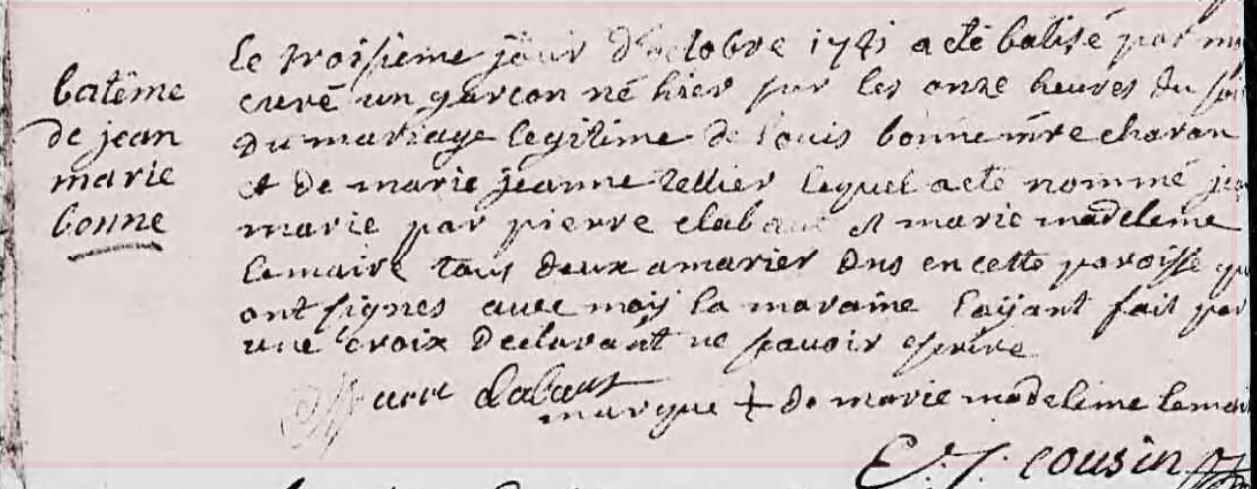 batême
de jean
marie
bonne
le troisieme jour d'octobre 1741 a eté batisé par
curé un garcon né hier sur les onze heures du
du mariage legitime de Louis bonne charon
et de marie jeanne tellier lequel a eté nommé
marie par pierre et marie madeleine
lemaire tous deux a marier en cette paroisse
ont signes avec moij la maraine l'aijant fait par
une croix declarant ne pouvoir
marque + de marie madeleine
E. J. cousin